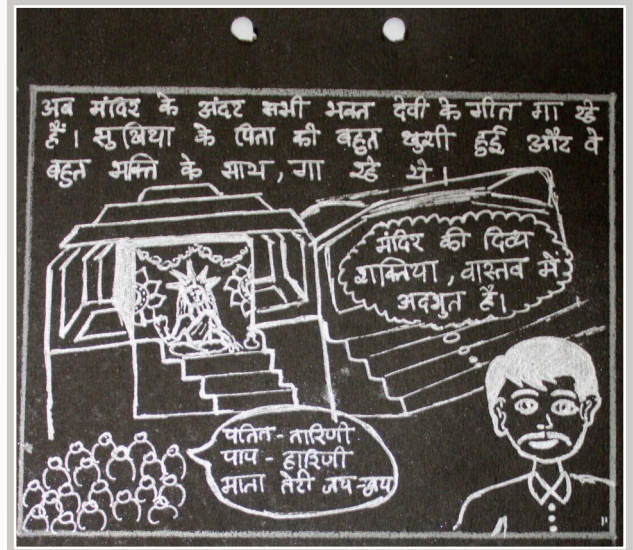 अब मंदिर के अंदर सभी भक्त देवी के गीत गा रहे
हैं। सुखिया के पिता की बहुत खुशी हुई और वे
बहुत भक्ति के साथ, गा रहे थे।
मंदिर की दिव्य
शक्तिया, वास्तव में
अदभुत है।
पतित-तारिणी
पाप-हारिणी
माता तेरी जय-जय
11